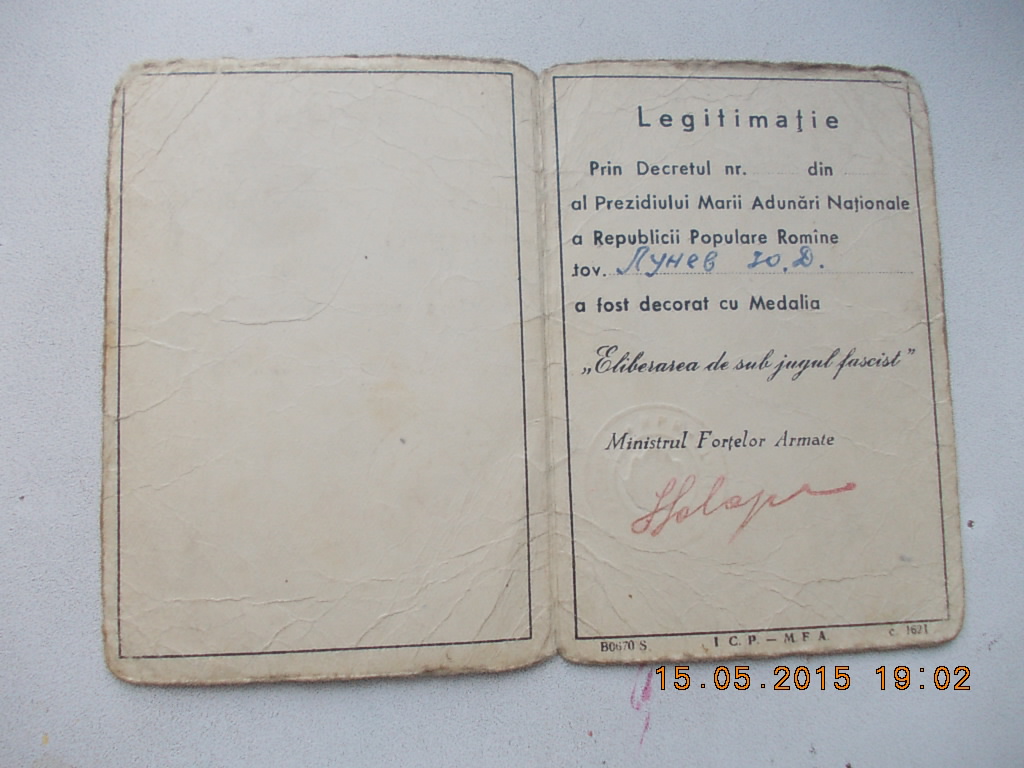 Legitimaţie
Prin Decretul nr. din
al Prezidiului Marii Adunări Naţionale
a Republicii Populare Romîne
tov. Лунев Ю. Д.
a fost decorat cu Medalia
„Eliberarea de sub jugul fascist”
Ministrul Forţelor Armate
B0670 S. I C. P. — M. F. A. c. 1621
15.05.2015 19:02